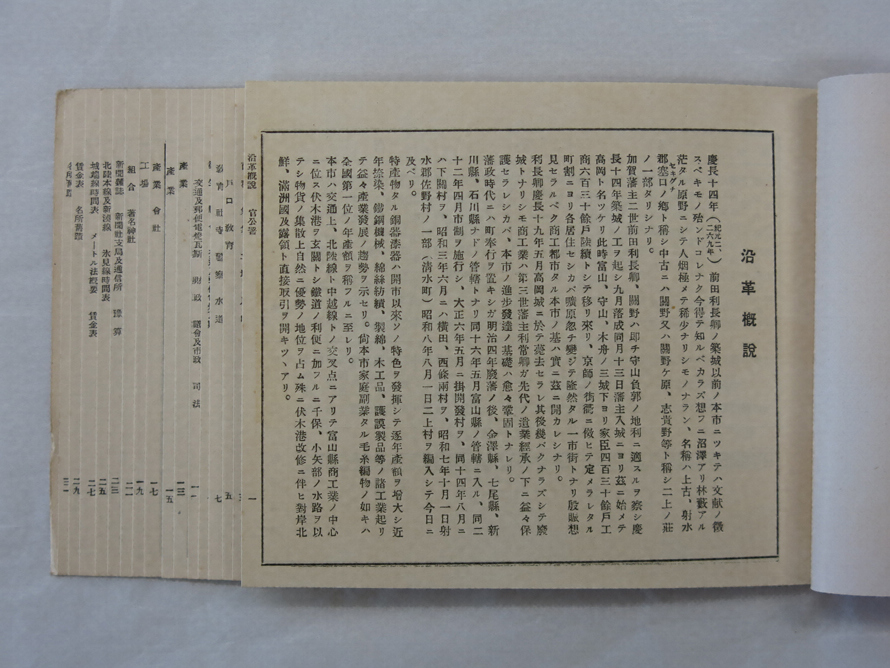 沿革概說
慶長十四年(紀元二、二六九年)前田利長卿ノ築城以前ノ本市ニツキテハ文献ノ徵
スベキモノ殆ンドコレナク今得テ知ルベカラズ想フニ沼澤アリ林藪アル
茫タル原野ニシテ人烟極メテ稀少ナリシモノナラン、名稱ハ上古、射水
郡塞口ノ鄕ト稱シ中古ニハ關野又ハ關野ケ原、志貴野等ト稱シ二上ノ莊
ノ一部タリシナリ。
加賀藩主二世前田利長卿、關野ハ卽チ守山負郭ノ地利ニ適スルヲ察シ慶
長十四年築城ノ工ヲ起シ九月落成同月十三日藩主入城ニヨリ茲ニ始メテ
高岡ト名ツケリ此時富山、守山、木舟ノ三城下ヨリ家臣四百三十餘戶工
商六百三十餘戶陸續トシテ移リ來リ、京師ノ街衢ニ倣ヒテ定メラレタル
町割ニヨリ各居住セシカバ曠原忽チ變ジテ隆然タル一市街トナリ殷賑想
見セラルベク商工都市タル本市ノ基ハ實ニ茲ニ開カレシナリ。
利長卿慶長十九年五月高岡城ニ於テ薨去セラレ其後幾バクナラズシテ廢
城トナリシモ商工業ハ第三世藩主利常卿ガ先代ノ遺業經承ノ下ニ益々保
護セラレシカバ、本市ノ進步發達ノ基礎ハ愈々鞏固トナレリ。
藩政時代ニハ町奉行ヲ置キシガ明治四年廢藩ノ後、金澤縣、七尾縣、新
川縣、石川縣ナドノ管轄トナリ同十六年五月富山縣ノ管轄ニ入ル、同二
十二年四月市制ヲ施行シ、大正六年五月ニ掛開發村ヲ、同十四年八月ニ
ハ下關村ヲ、昭和三年六月ニハ橫田、西條兩村ヲ、昭和七年十月一日射
水郡佐野村ノ一部(淸水町)昭和八年八月一日二上村ヲ編入シテ今日ニ
及ベリ。
特產物タル銅器漆器ハ開市以來ソノ特色ヲ發揮シテ逐年產額ヲ增大シ近
年捺染、鐵銅機械、綿絲紡績、製綿、木工品、護謨製品等ノ諸工業起リ
テ益々產業發展ノ趨勢ヲ示セリ。尙本市家庭副業タル毛糸編物ノ如キハ
全國第一位ノ年產額ヲ稱フルニ至レリ。
本市ハ交通上、北陸線ト中越線トノ交叉点ニアリテ富山縣商工業ノ中心
ニ位ス伏木港ヲ玄關トシ鐵道ノ利便ニ加フルニ千保、小矢部ノ水路ヲ以
テシ物貨ノ集散上自然ニ優勢ノ地位ヲ占ム殊ニ伏木港改修ニ伴ヒ對岸北
鮮、滿洲國及露領ト直接取引ヲ開キツヽアリ。
沿革槪說 官公署 一
戶口 敎育 五
七
交通及郵便電信瓦斯 財政 議會及市政 司法 一一
產業 一三
產業 一五
產業會社 一七
工場 一九
組合 著名神社 二一
新聞雜誌 新聞社支局及通信所 二三
北陸本線及新湊線 氷見線時間表 二五
城端線時間表 メートル法槪要 賃金表 二七
賃金表 名所舊蹟 二九
三一